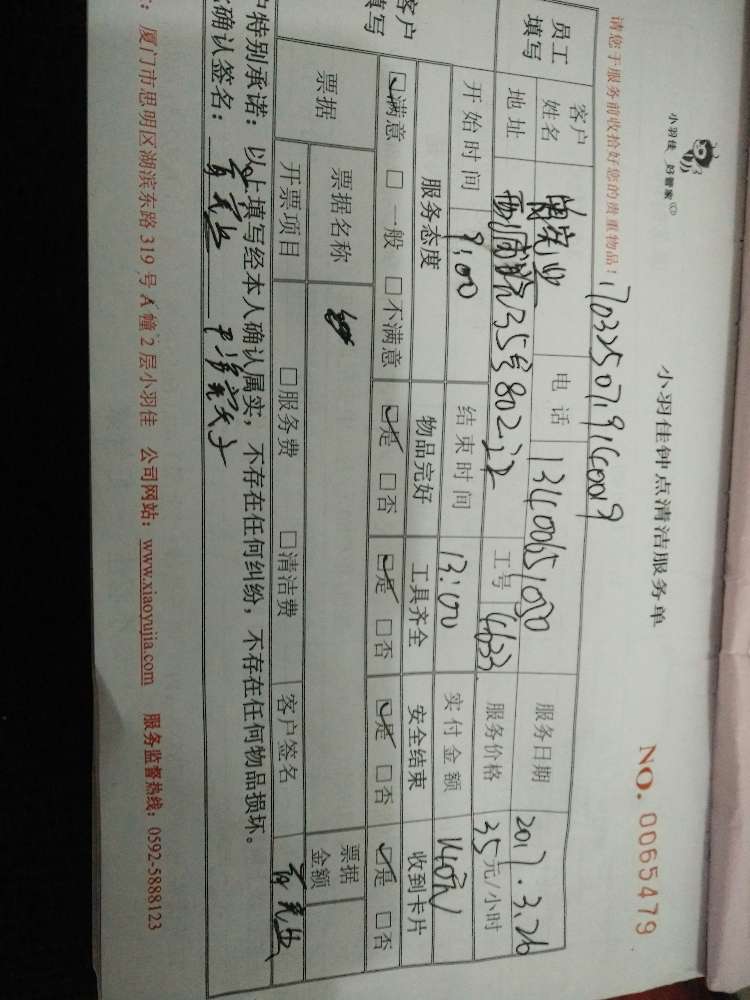 小羽佳 好管家
小羽佳钟点清洁服务单
NO. 0065479
请您于服务前收拾好您的贵重物品!
员工填写
客户姓名 电话 服务日期 2017.3.26
地址 工号 4633 服务价格 35元/小时
开始时间 9:00 结束时间 13:00 实付金额
客户填写
服务态度 物品完好 工具齐全 安全结束 收到卡片
☑满意 □一般 □不满意 ☑是 □否 ☑是 □否 ☑是 □否 ☑是 □否
票据 票据名称 票据金额
开票项目 □服务费 □清洁费 客户签名
客户特别承诺:以上填写经本人确认属实,不存在任何纠纷,不存在任何物品损坏。
确认签名:
厦门市思明区湖滨东路319号A幢2层小羽佳 公司网站:www.xiaoyujia.com 服务监督热线:0592-5888123